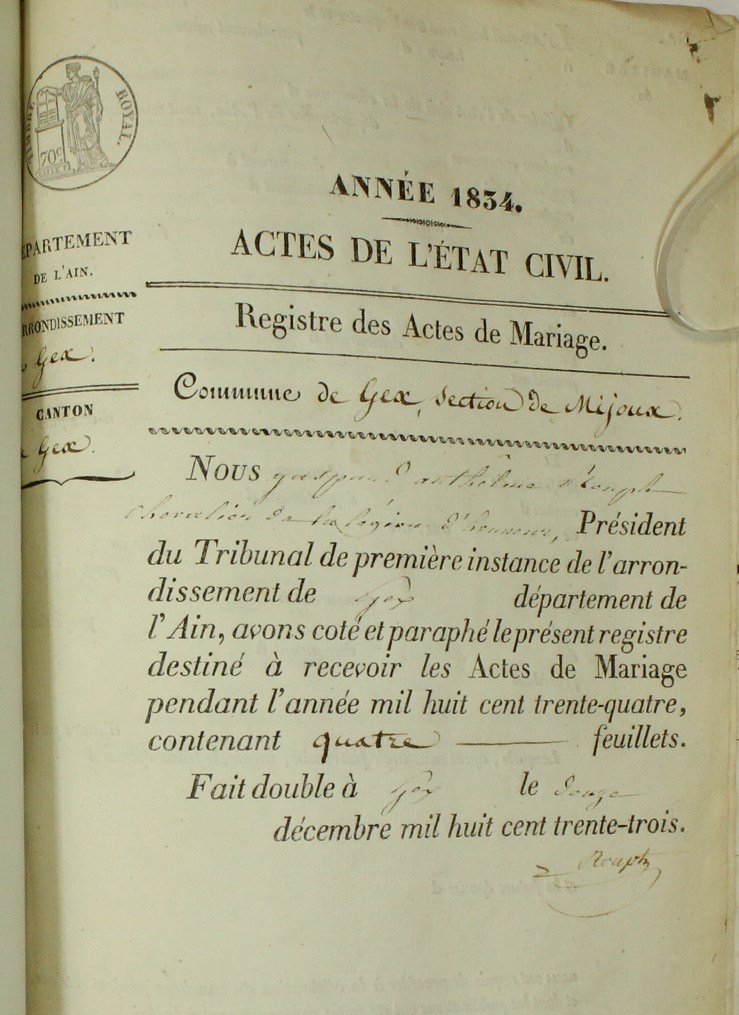 TIMBRE ROYAL.
70c
ANNÉE 1834.
ACTES DE L'ÉTAT CIVIL.
EPARTEMENT
DE L'AIN.
RRONDISSEMENT
Gex.
CANTON
Gex.
Registre des Actes de Mariage.
Commune de Gex, section de Mijoux.
Nous anthelme Rouph
chevalier de la légion d'honneur, Président
du Tribunal de première instance de l'arron-
dissement de Gex département de
l'Ain, avons coté et paraphé le présent registre
destiné à recevoir les Actes de Mariage
pendant l'année mil huit cent trente-quatre,
contenant quatre feuillets.
Fait double à Gex le douze
décembre mil huit cent trente-trois.
Rouph